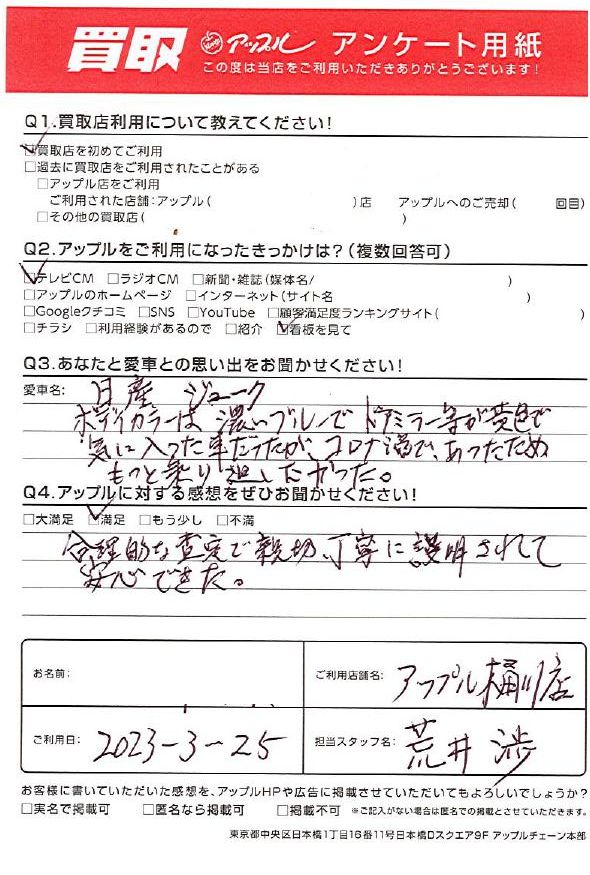 買取 アップル アンケート用紙
この度は当店をご利用いただきありがとうございます!
Q1.買取店利用について教えてください!
☑買取店を初めてご利用
□過去に買取店をご利用されたことがある
□アップル店をご利用
ご利用された店舗:アップル( )店 アップルへのご売却( 回目)
□その他の買取店( )
Q2.アップルをご利用になったきっかけは?(複数回答可)
☑テレビCM □ラジオCM □新聞・雑誌(媒体名/ )
□アップルのホームページ □インターネット(サイト名 )
□Googleクチコミ □SNS □YouTube □顧客満足度ランキングサイト( )
□チラシ □利用経験があるので □紹介 ☑看板を見て
Q3.あなたと愛車との思い出をお聞かせください!
愛車名: 日産 ジューク
ボディカラーは濃いブルーでドアミラー等が黄色で
気に入った車だったが、コロナ渦で、あったため
もっと乗り廻したかった。
Q4.アップルに対する感想をぜひお聞かせください!
□大満足 ☑満足 □もう少し □不満
合理的な査定で親切、丁寧に説明されて
安心できた。
お名前:
ご利用店舗名: アップル桶川店
ご利用日: 2023-3-25
担当スタッフ名: 荒井 渉
お客様に書いていただいた感想を、アップルHPや広告に掲載させていただいてもよろしいでしょうか?
□実名で掲載可 □匿名なら掲載可 □掲載不可 ※ご記入がない場合は匿名での掲載とさせていただきます。
東京都中央区日本橋1丁目16番11号日本橋Dスクエア9F アップルチェーン本部